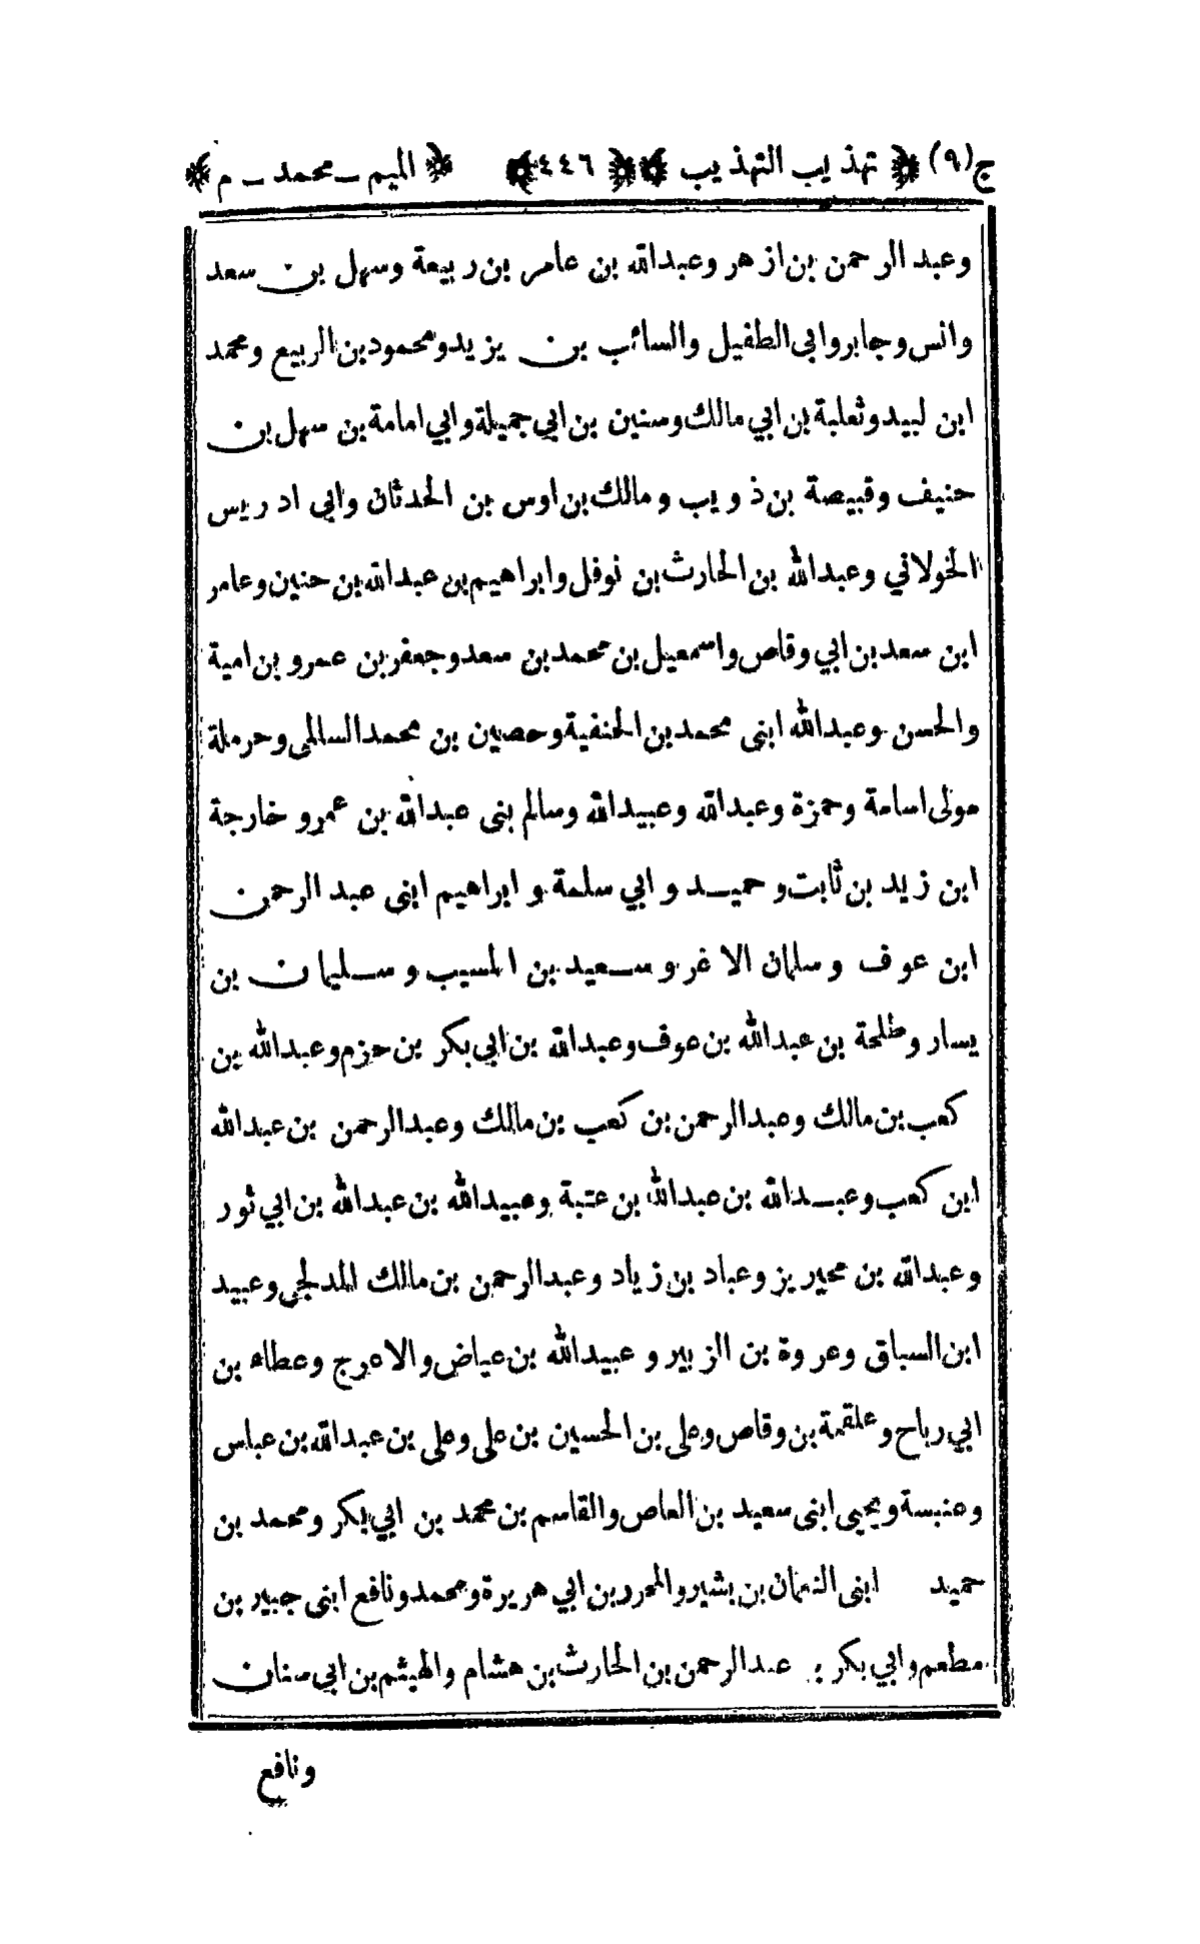 ج(٩) ﴿ تهذيب التهذيب ﴾ ﴿ ٤٤٦ ﴾ ﴿ الميم ـ محمد ـ م ﴾
وعبد الرحمن بن ازهر وعبدالله بن عامر بن ربيعة وسهل بن سعد
وانس وجابر وابى الطفيل والسائب بن يزيد ومحمود بن الربيع ومحمد
ابن لبيد وثعلبة بن ابي مالك وسنين بن ابي جميلة وابي امامة بن سهل بن
حنيف وقبيصة بن ذويب ومالك بن اوس بن الحدثان وابي ادريس
الخولاني وعبدالله بن الحارث بن نوفل وابراهيم بن عبدالله بن حنين وعامر
ابن سعد بن ابي وقاص واسمعيل بن محمد بن سعد وجعفر بن عمرو بن امية
والحسن وعبدالله ابنى محمد بن الحنفية وحصين بن محمد السالمى وحرملة
مولى اسامة وحمزة وعبدالله وعبيدالله وسالم بنى عبدالله بن عمرو خارجة
ابن زيد بن ثابت وحميد وابي سلمة و ابراهيم ابنى عبد الرحمن
ابن عوف وسلمان الاغر وسعيد بن المسيب وسليمان بن
يسار وطلحة بن عبدالله بن عوف وعبدالله بن ابي بكر بن حزم وعبدالله بن
كعب بن مالك وعبدالرحمن بن كعب بن مالك وعبدالرحمن بن عبدالله
ابن كعب وعبدالله بن عبدالله بن عتبة وعبيدالله بن عبدالله بن ابي ثور
وعبدالله بن محيريز وعباد بن زياد وعبدالرحمن بن مالك المدلجى وعبيد
ابن السباق وعروة بن الزبير و عبيدالله بن عياض والاعرج وعطاء بن
ابي رباح وعلقمة بن وقاص وعلى بن الحسين بن على وعلى بن عبدالله بن عباس
وعنبسة ويحيى ابنى سعيد بن العاص والقاسم بن محمد بن ابي بكر ومحمد بن
حميد ابنى النعمان بن بشير والمحرر بن ابي هريرة ومحمد ونافع ابنى جبير بن
مطعم وابي بكر بن عبدالرحمن بن الحارث بن هشام والهيثم بن ابي سنان
ونافع